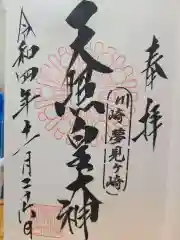 奉拝
川崎
夢見ヶ崎
天照皇大神
令和四年十一月二十六日